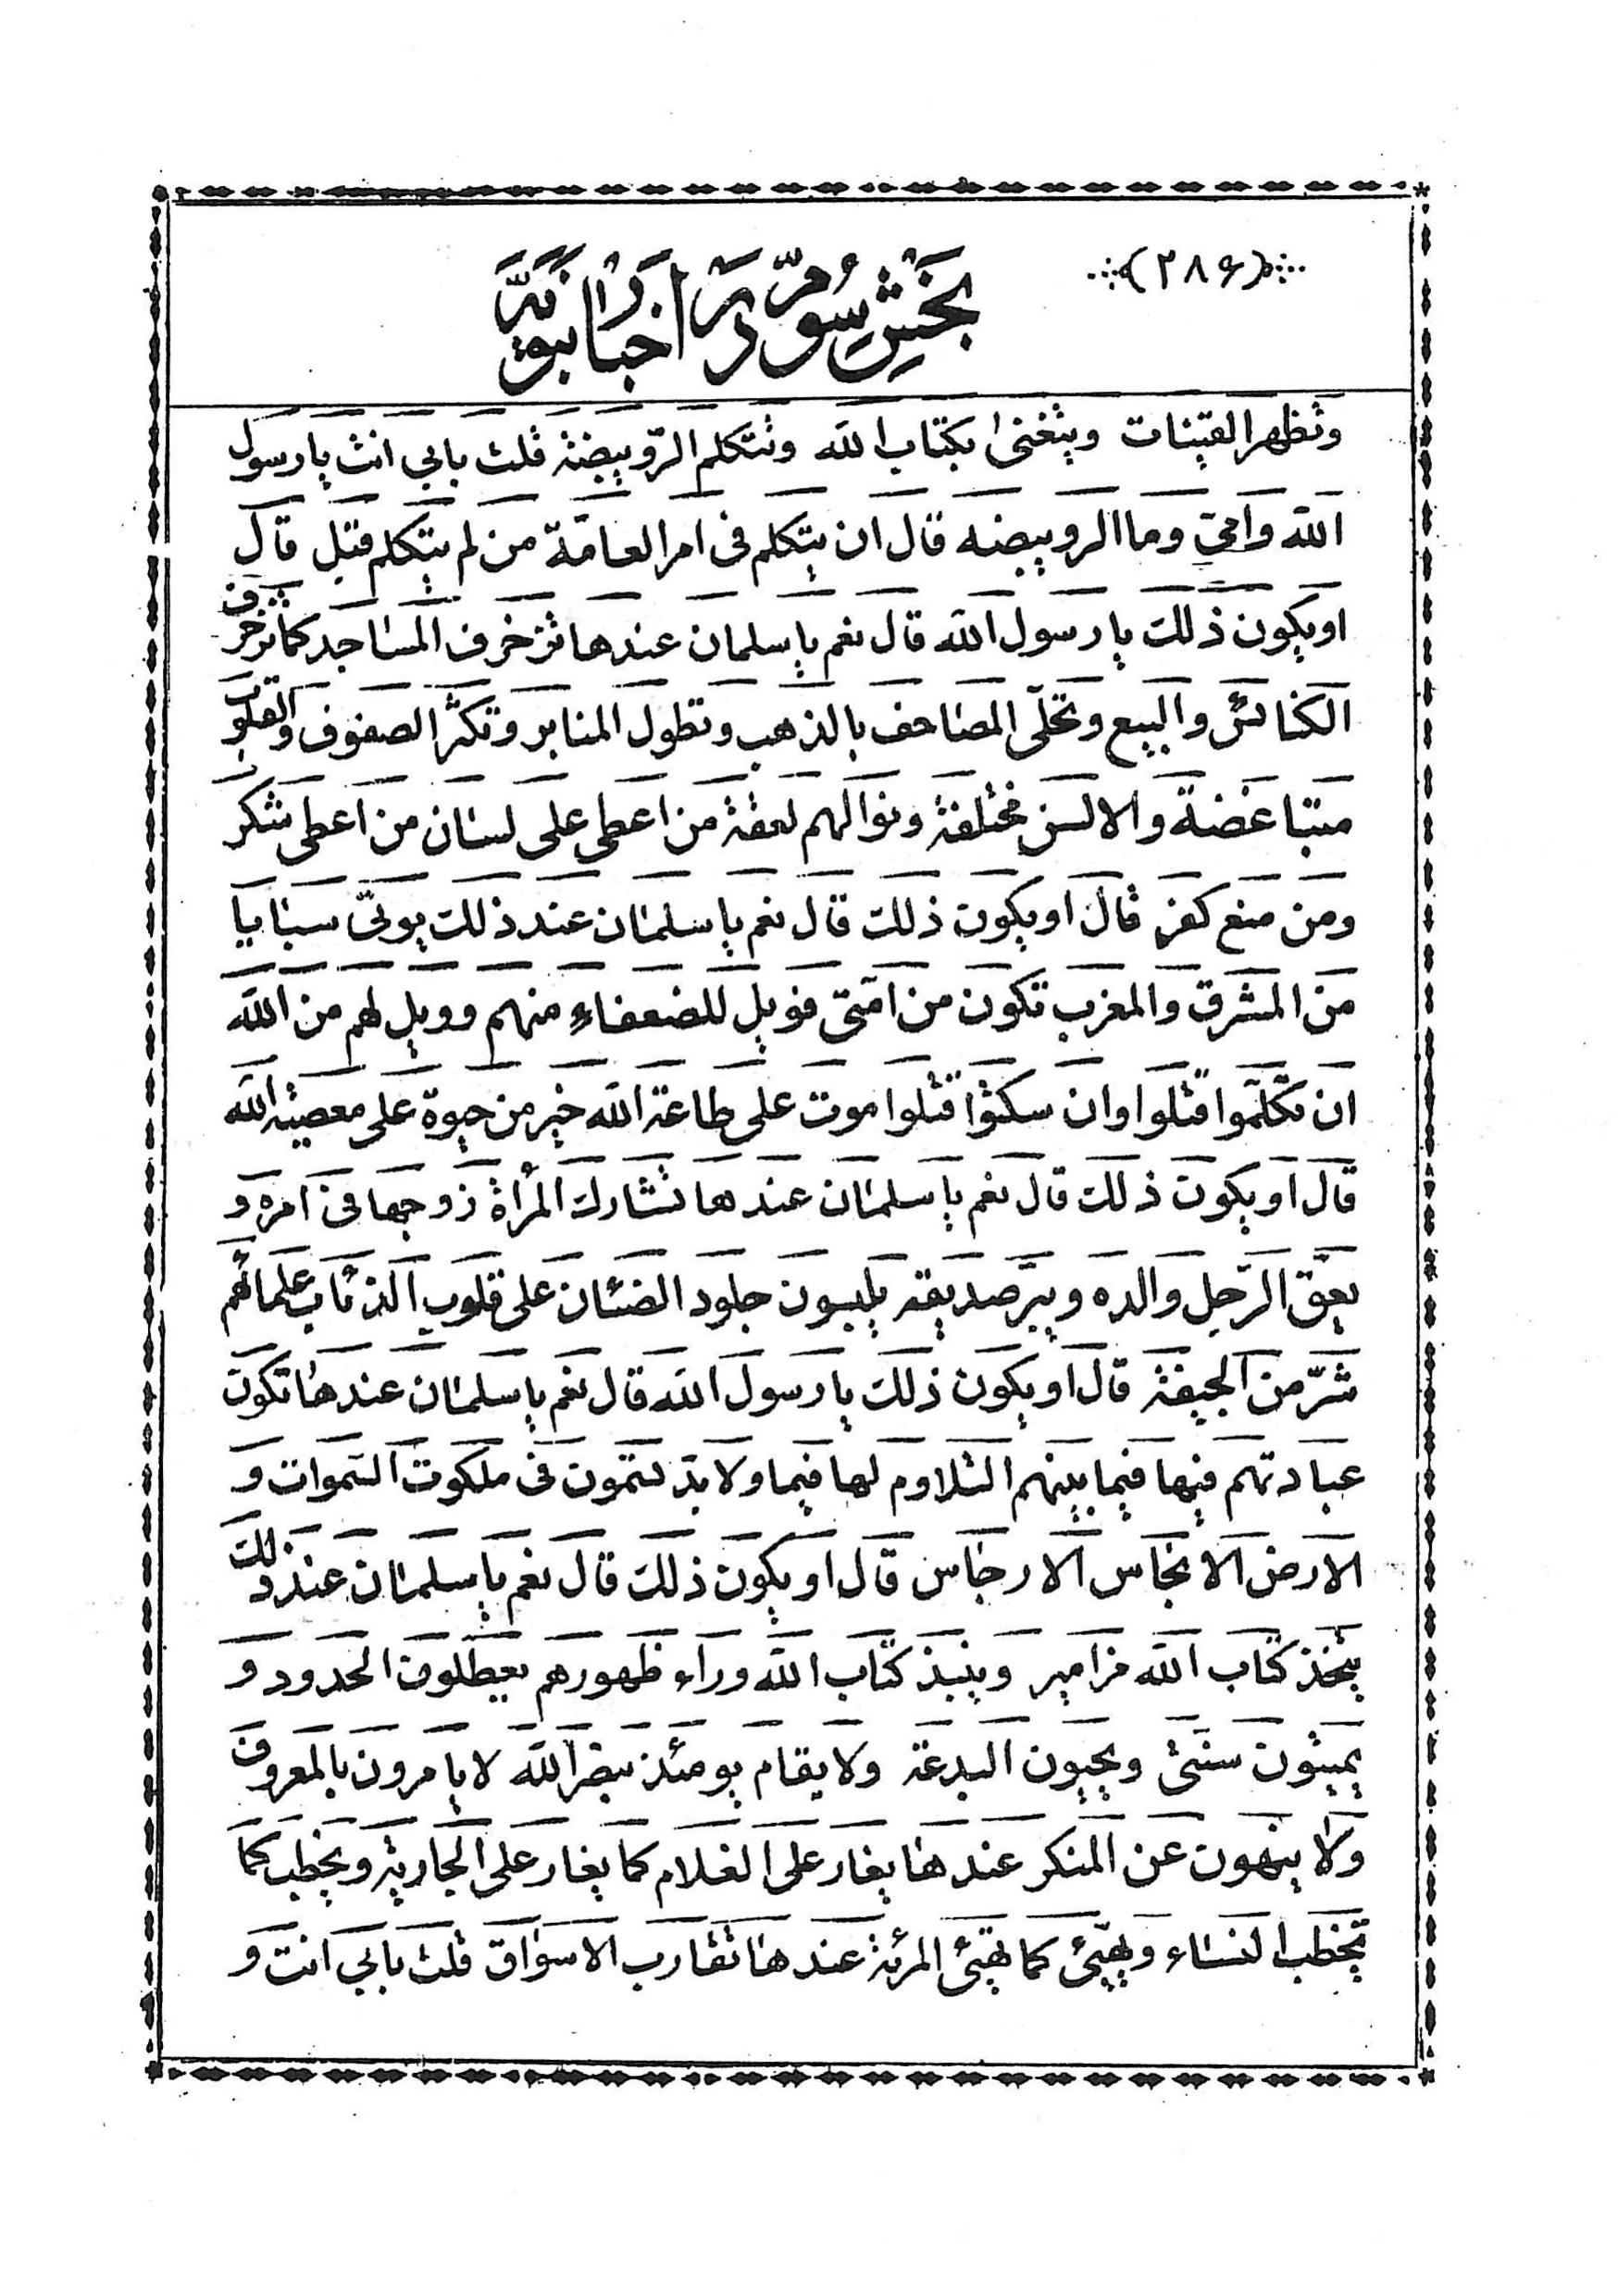 (۲۸۶)
بخش سوّم در اخبار نبویّه
وتظهر القینات ویتغنی بکتاب الله وتتکلم الرّویبضة قلت بابی انت یا رسول
الله وامّی وما الرویبضه قال ان یتکلم فی امر العامّة من لم یتکلم قبل قال
او یکون ذلک یا رسول الله قال نعم یا سلمان عندها تزخرف المساجد کما تزخرف
الکنائس والبیع وتحلّی المصاحف بالذهب وتطول المنابر وتکثر الصفوف والقلوب
متباغضة والالسن مختلفة ونوالهم لعقة من اعطی علی لسان من اعطی شکر
ومن منع کفر قال او یکون ذلک قال نعم یا سلمان عند ذلک یوتی سبایا
من المشرق والمغرب تکون من امّتی فویل للضعفاء منهم وویل لهم من الله
ان تکلّموا قتلوا وان سکتوا قتلوا موت علی طاعة الله خیر من حیوة علی معصیة الله
قال او یکون ذلک قال نعم یا سلمان عندها تشارک المرأة زوجها فی امره و
یعقّ الرّجل والده ویبرّ صدیقه یلبسون جلود الضئان علی قلوب الذئاب علمائهم
شرّ من الجیفة قال او یکون ذلک یا رسول الله قال نعم یا سلمان عندها تکون
عبادتهم فیها فیما بینهم التلاوم لها فیما ولا بدّ لتمون فی ملکوت السموات و
الارض الانجاس الارجاس قال او یکون ذلک قال نعم یا سلمان عند ذلک
یتخذ کتاب الله مزامیر وینبذ کتاب الله وراء ظهورهم یعطلون الحدود و
یمیتون سنتی ویحیون البدعة ولا یقام یومئذ بنصر الله لا یامرون بالمعروف
ولا ینهون عن المنکر عندها یغار علی الغلام کما یغار علی الجاریة ویخطب کما
تخطب النساء ویهیّئ کما تهیّئ المرئة عندها تقارب الاسواق قلت بابی انت و